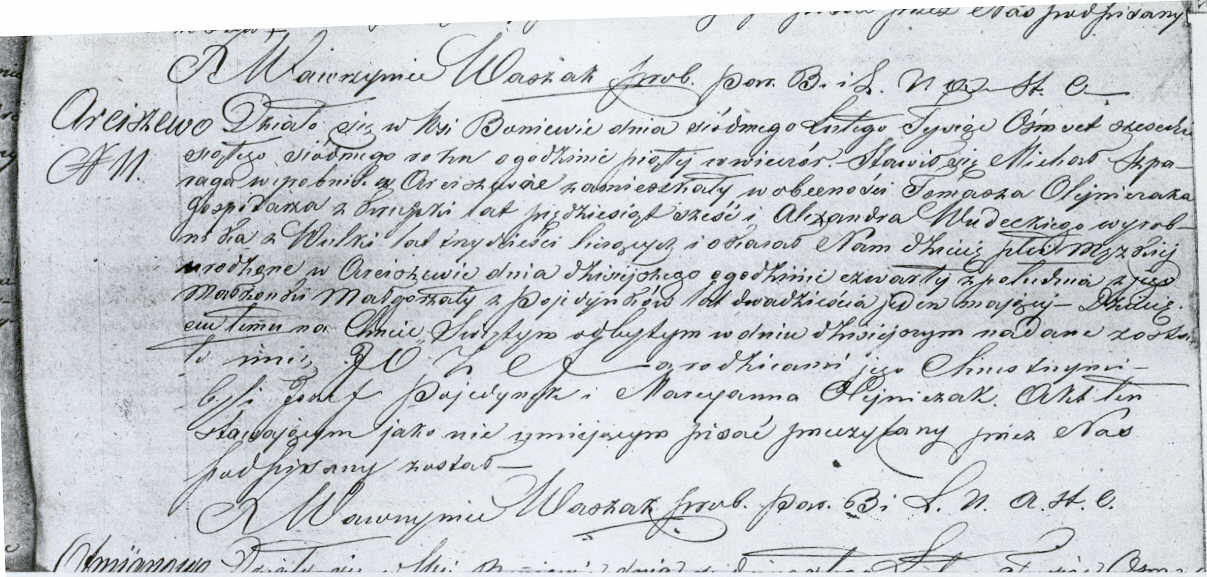 przez Nas podpisany
X Wawrzyniec Waszak prob. par. B. i L. U. A. St. C.
Arciszewo Działo się w Wsi Boniewie dnia siódmego Lutego Tysiąc Ośmset sześćdzie
N 11. siątego siódmego roku o godzinie piąty w wieczór. Stawił się Michał Szpa-
raga wyrobnik w Arciszewie zamieszkały w obecności Tomasza Olejniczaka
gospodarza z lat pięćdziesiąt sześć i Alexandra Wudeckiego wyrob-
nika z Wulki lat trzydzieści liczących i okazał Nam dziecię płci męzkiej
urodzone w Arciszewie dnia dzisiejszego o godzinie czwarty z południa z jego
Małżonki Małgorzaty z Pojedynków lat dwadzieścia jeden mającej – Dziecię-
ciu temu na Chrcie Świętym odbytym w dniu dzisiejszym nadane zosta-
ło imię a rodzicami jego Chrestnymi
byli Józef Pojedynek i Maryanna Olejniczak. Akt ten
stawającym jako nie umiejącym pisać przeczytany przez Nas
podpisany został –
X Wawrzyniec Waszak prob. par. B i L. U. A. St. C.
Działo się w Wsi Boniewie dnia